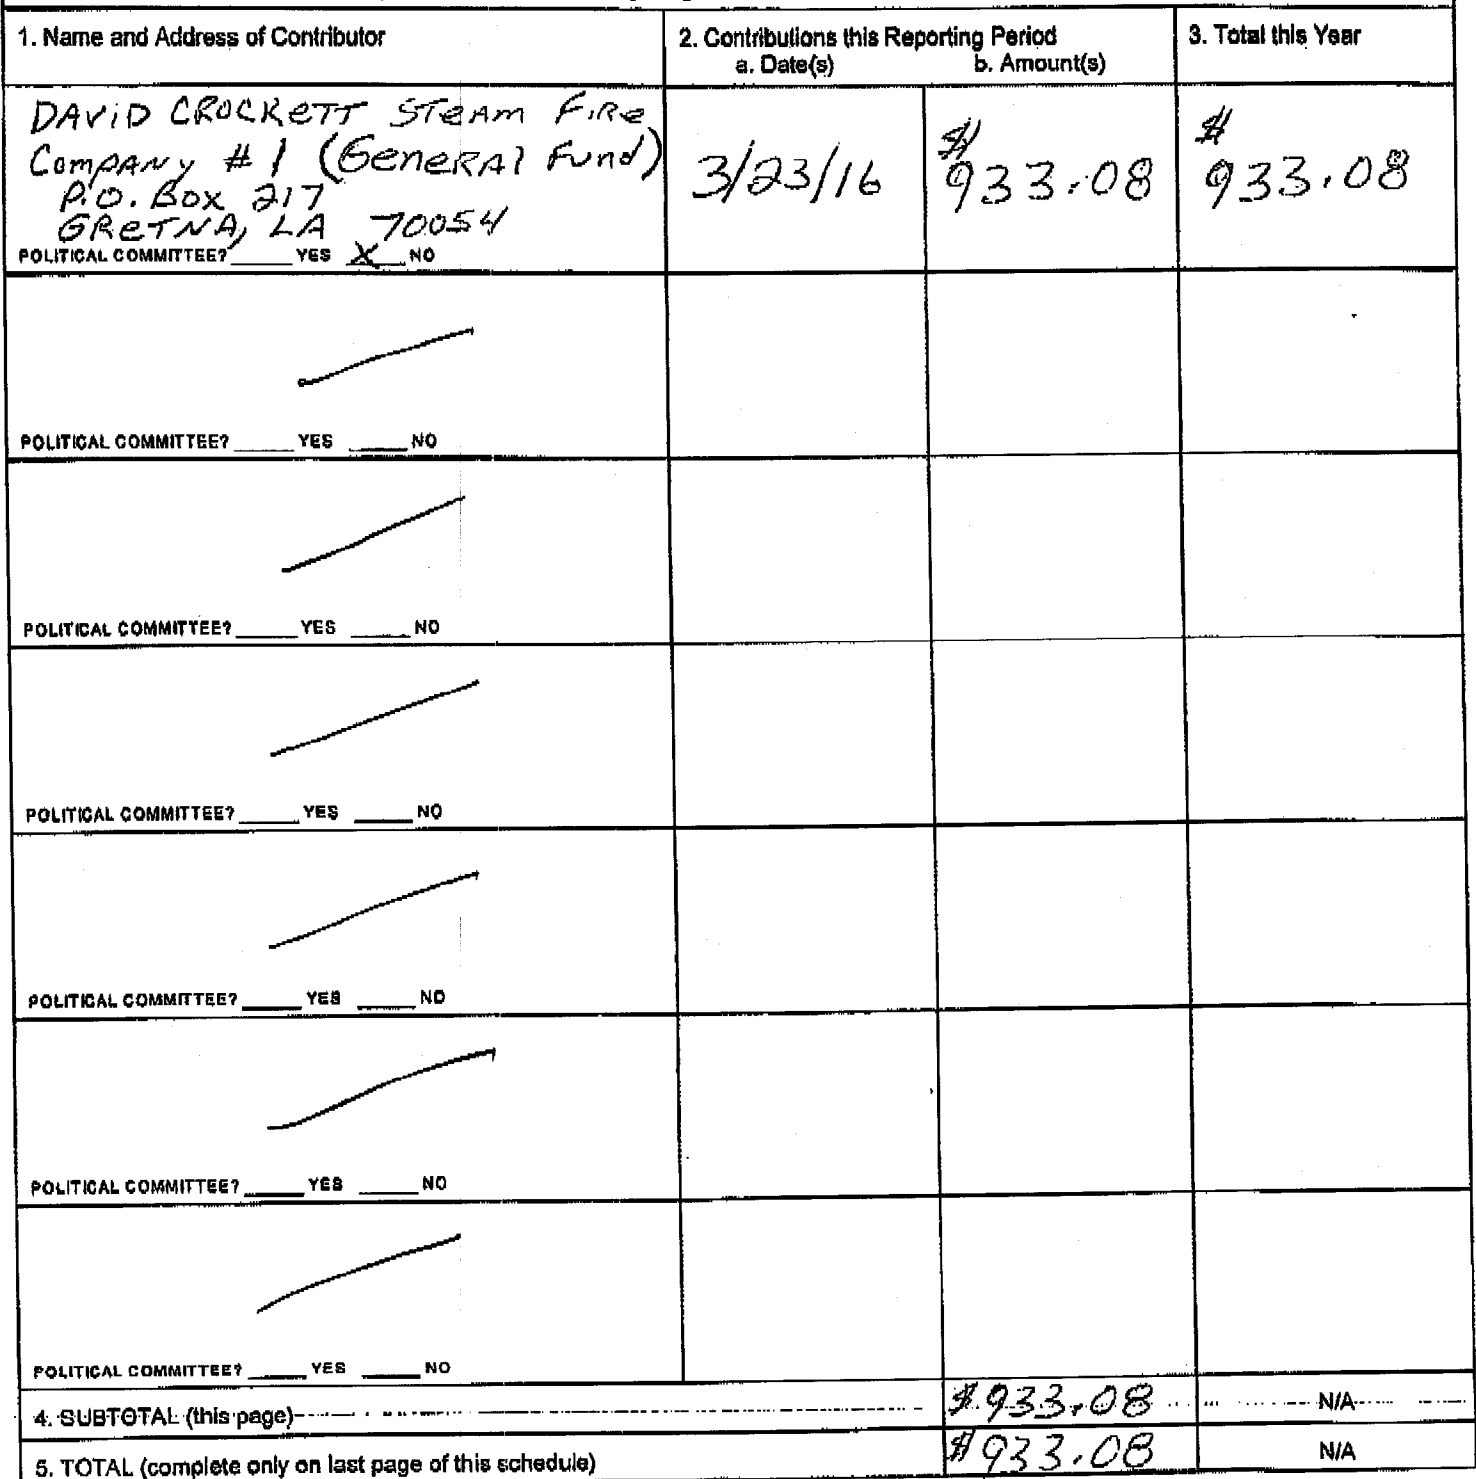 1. Name and Address of Contributor
2. Contributions this Reporting Period
a. Date(s)
b. Amount(s)
3. Total this Year
DAVID CROCKETT STEAM FIRE
COMPANY # 1 (GENERAL FUND)
P.O. BOX 217
GRETNA, LA 70054
POLITICAL COMMITTEE? ____ YES X NO
3/23/16
$ 933.08
$ 933.08
POLITICAL COMMITTEE? ____ YES ____ NO
POLITICAL COMMITTEE? ____ YES ____ NO
POLITICAL COMMITTEE? ____ YES ____ NO
POLITICAL COMMITTEE? ____ YES ____ NO
POLITICAL COMMITTEE? ____ YES ____ NO
POLITICAL COMMITTEE? ____ YES ____ NO
4. SUBTOTAL (this page) $ 933.08 N/A
5. TOTAL (complete only on last page of this schedule) $ 933.08 N/A